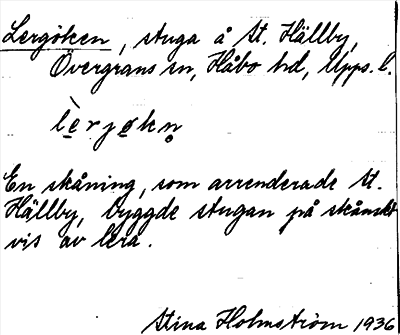 Lergöken, stuga å St. Hällby,
Övergrans sn, Håbo hd, Upps. l.
lèrjøkn̥
En skåning, som arrenderade St.
Hällby, byggde stugan på skånskt
vis av lera.
Stina Holmström 1936